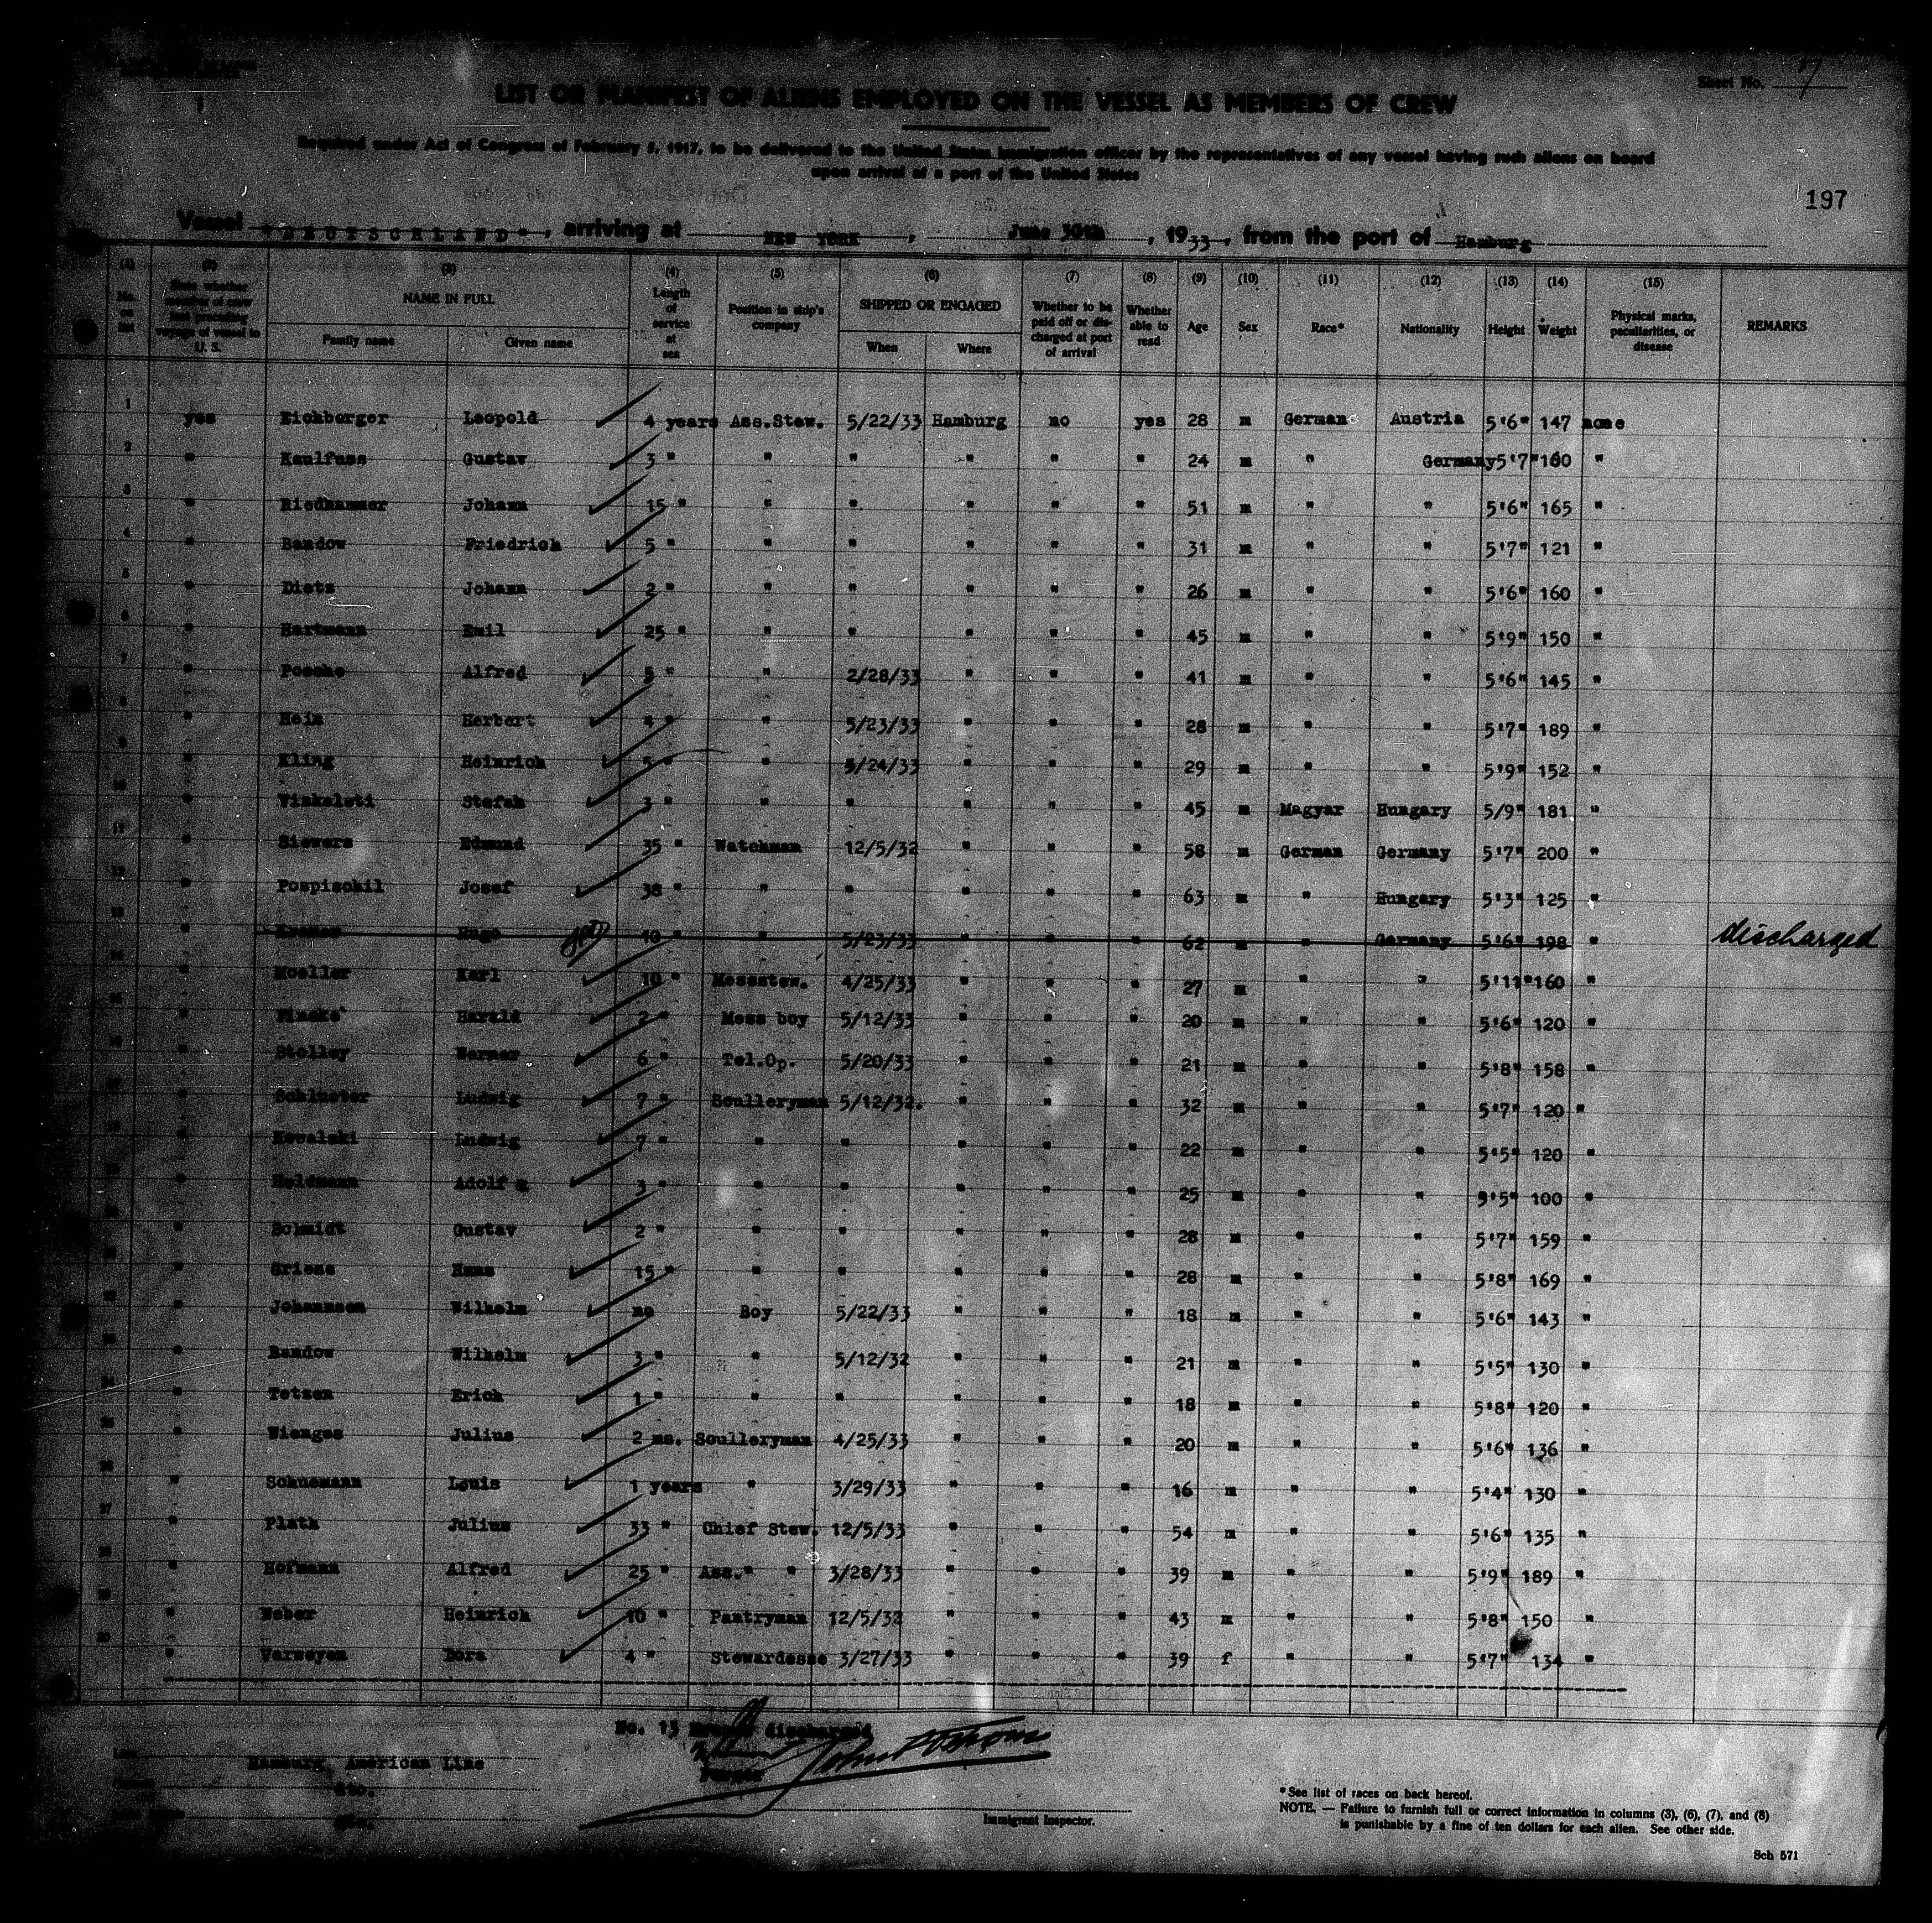 Sheet No. 7
LIST OR MANIFEST OF ALIENS EMPLOYED ON THE VESSEL AS MEMBERS OF CREW
Required under Act of Congress of February 5, 1917, to be delivered to the United States immigration officer by the representatives of any vessel having such aliens on board
upon arrival at a port of the United States
197
Vessel "DEUTSCHLAND", arriving at NEW YORK, June 30th, 1933, from the port of Hamburg
(1) (2) (3) (4) (5) (6) (7) (8) (9) (10) (11) (12) (13) (14) (15)
No. on list State whether member of crew last preceding voyage of vessel to U. S. NAME IN FULL Family name Given name Length of service at sea Position in ship's company SHIPPED OR ENGAGED When Where Whether to be paid off or discharged at port of arrival Whether able to read Age Sex Race* Nationality Height Weight Physical marks, peculiarities, or disease REMARKS
1 yes Eichberger Leopold 4 years Ass.Stew. 5/22/33 Hamburg no yes 28 m German Austria 5'6" 147 none
2 " Kaulfuss Gustav 3 " " " " " " 24 m " Germany 5'7" 160 "
3 " Riedhammer Johann 15 " " " " " " 51 m " " 5'6" 165 "
4 " Bandow Friedrich 5 " " " " " " 31 m " " 5'7" 121 "
5 " Dietz Johann 2 " " " " " " 26 m " " 5'6" 160 "
6 " Hartmann Emil 25 " " " " " " 45 m " " 5'9" 150 "
7 " Posche Alfred 5 " " 2/28/33 " " " 41 m " " 5'6" 145 "
8 " Hein Herbert 4 " " 5/23/33 " " " 28 m " " 5'7" 189 "
9 " Kling Heinrich 5 " " 5/24/33 " " " 29 m " " 5'9" 152 "
10 " Stefan 3 " " " " " " 45 m Magyar Hungary 5/9" 181 "
11 " Siewers Edmund 35 " Watchman 12/5/32 " " " 58 m German Germany 5'7" 200 "
12 " Pospischil Josef 38 " " " " " " 63 m " Hungary 5'3" 125 "
13 " Kramer Hugo 10 " " 5/23/33 " " " 62 m " Germany 5'6" 198 " discharged
14 " Moeller Karl 10 " Messstew. 4/25/33 " " " 27 m " " 5'11" 160 "
15 " Fincke Harald 2 " Mess boy 5/12/33 " " " 20 m " " 5'6" 120 "
16 " Stolley Werner 6 " Tel.Op. 5/20/33 " " " 21 m " " 5'8" 158 "
17 " Schlueter Ludwig 7 " Sculleryman 5/12/32. " " " 32 m " " 5'7" 120 "
18 " Kowalski Ludwig 7 " " " " " " 22 m " " 5'5" 120 "
19 " Heldmann Adolf 3 " " " " " " 25 m " " 5'5" 100 "
20 " Schmidt Gustav 2 " " " " " " 28 m " " 5'7" 159 "
21 " Griese Hans 15 " " " " " " 28 m " " 5'8" 169 "
22 " Johannsen Wilhelm no Boy 5/22/33 " " " 18 m " " 5'6" 143 "
23 " Bandow Wilhelm 3 " " 5/12/32 " " " 21 m " " 5'5" 130 "
24 " Tetzen Erich 1 " " " " " " 18 m " " 5'8" 120 "
25 " Wienges Julius 2 ms. Sculleryman 4/25/33 " " " 20 m " " 5'6" 136 "
26 " Schuemann Louis 1 years " 3/29/33 " " " 16 m " " 5'4" 130 "
27 " Plath Julius 33 " Chief Stew. 12/5/33 " " " 54 m " " 5'6" 135 "
28 " Hofmann Alfred 25 " Ass. " " 3/28/33 " " " 39 m " " 5'9" 189 "
29 " Weber Heinrich 10 " Pantryman 12/5/32 " " " 43 m " " 5'8" 150 "
30 " Verweyen Dora 4 " Stewardesse 3/27/33 " " " 39 f " " 5'7" 134 "
No. 13 discharged
Line Hamburg American Line
do.
do.
Immigrant Inspector.
*See list of races on back hereof.
NOTE. — Failure to furnish full or correct information in columns (3), (6), (7), and (8)
is punishable by a fine of ten dollars for each alien. See other side.
Sch 571